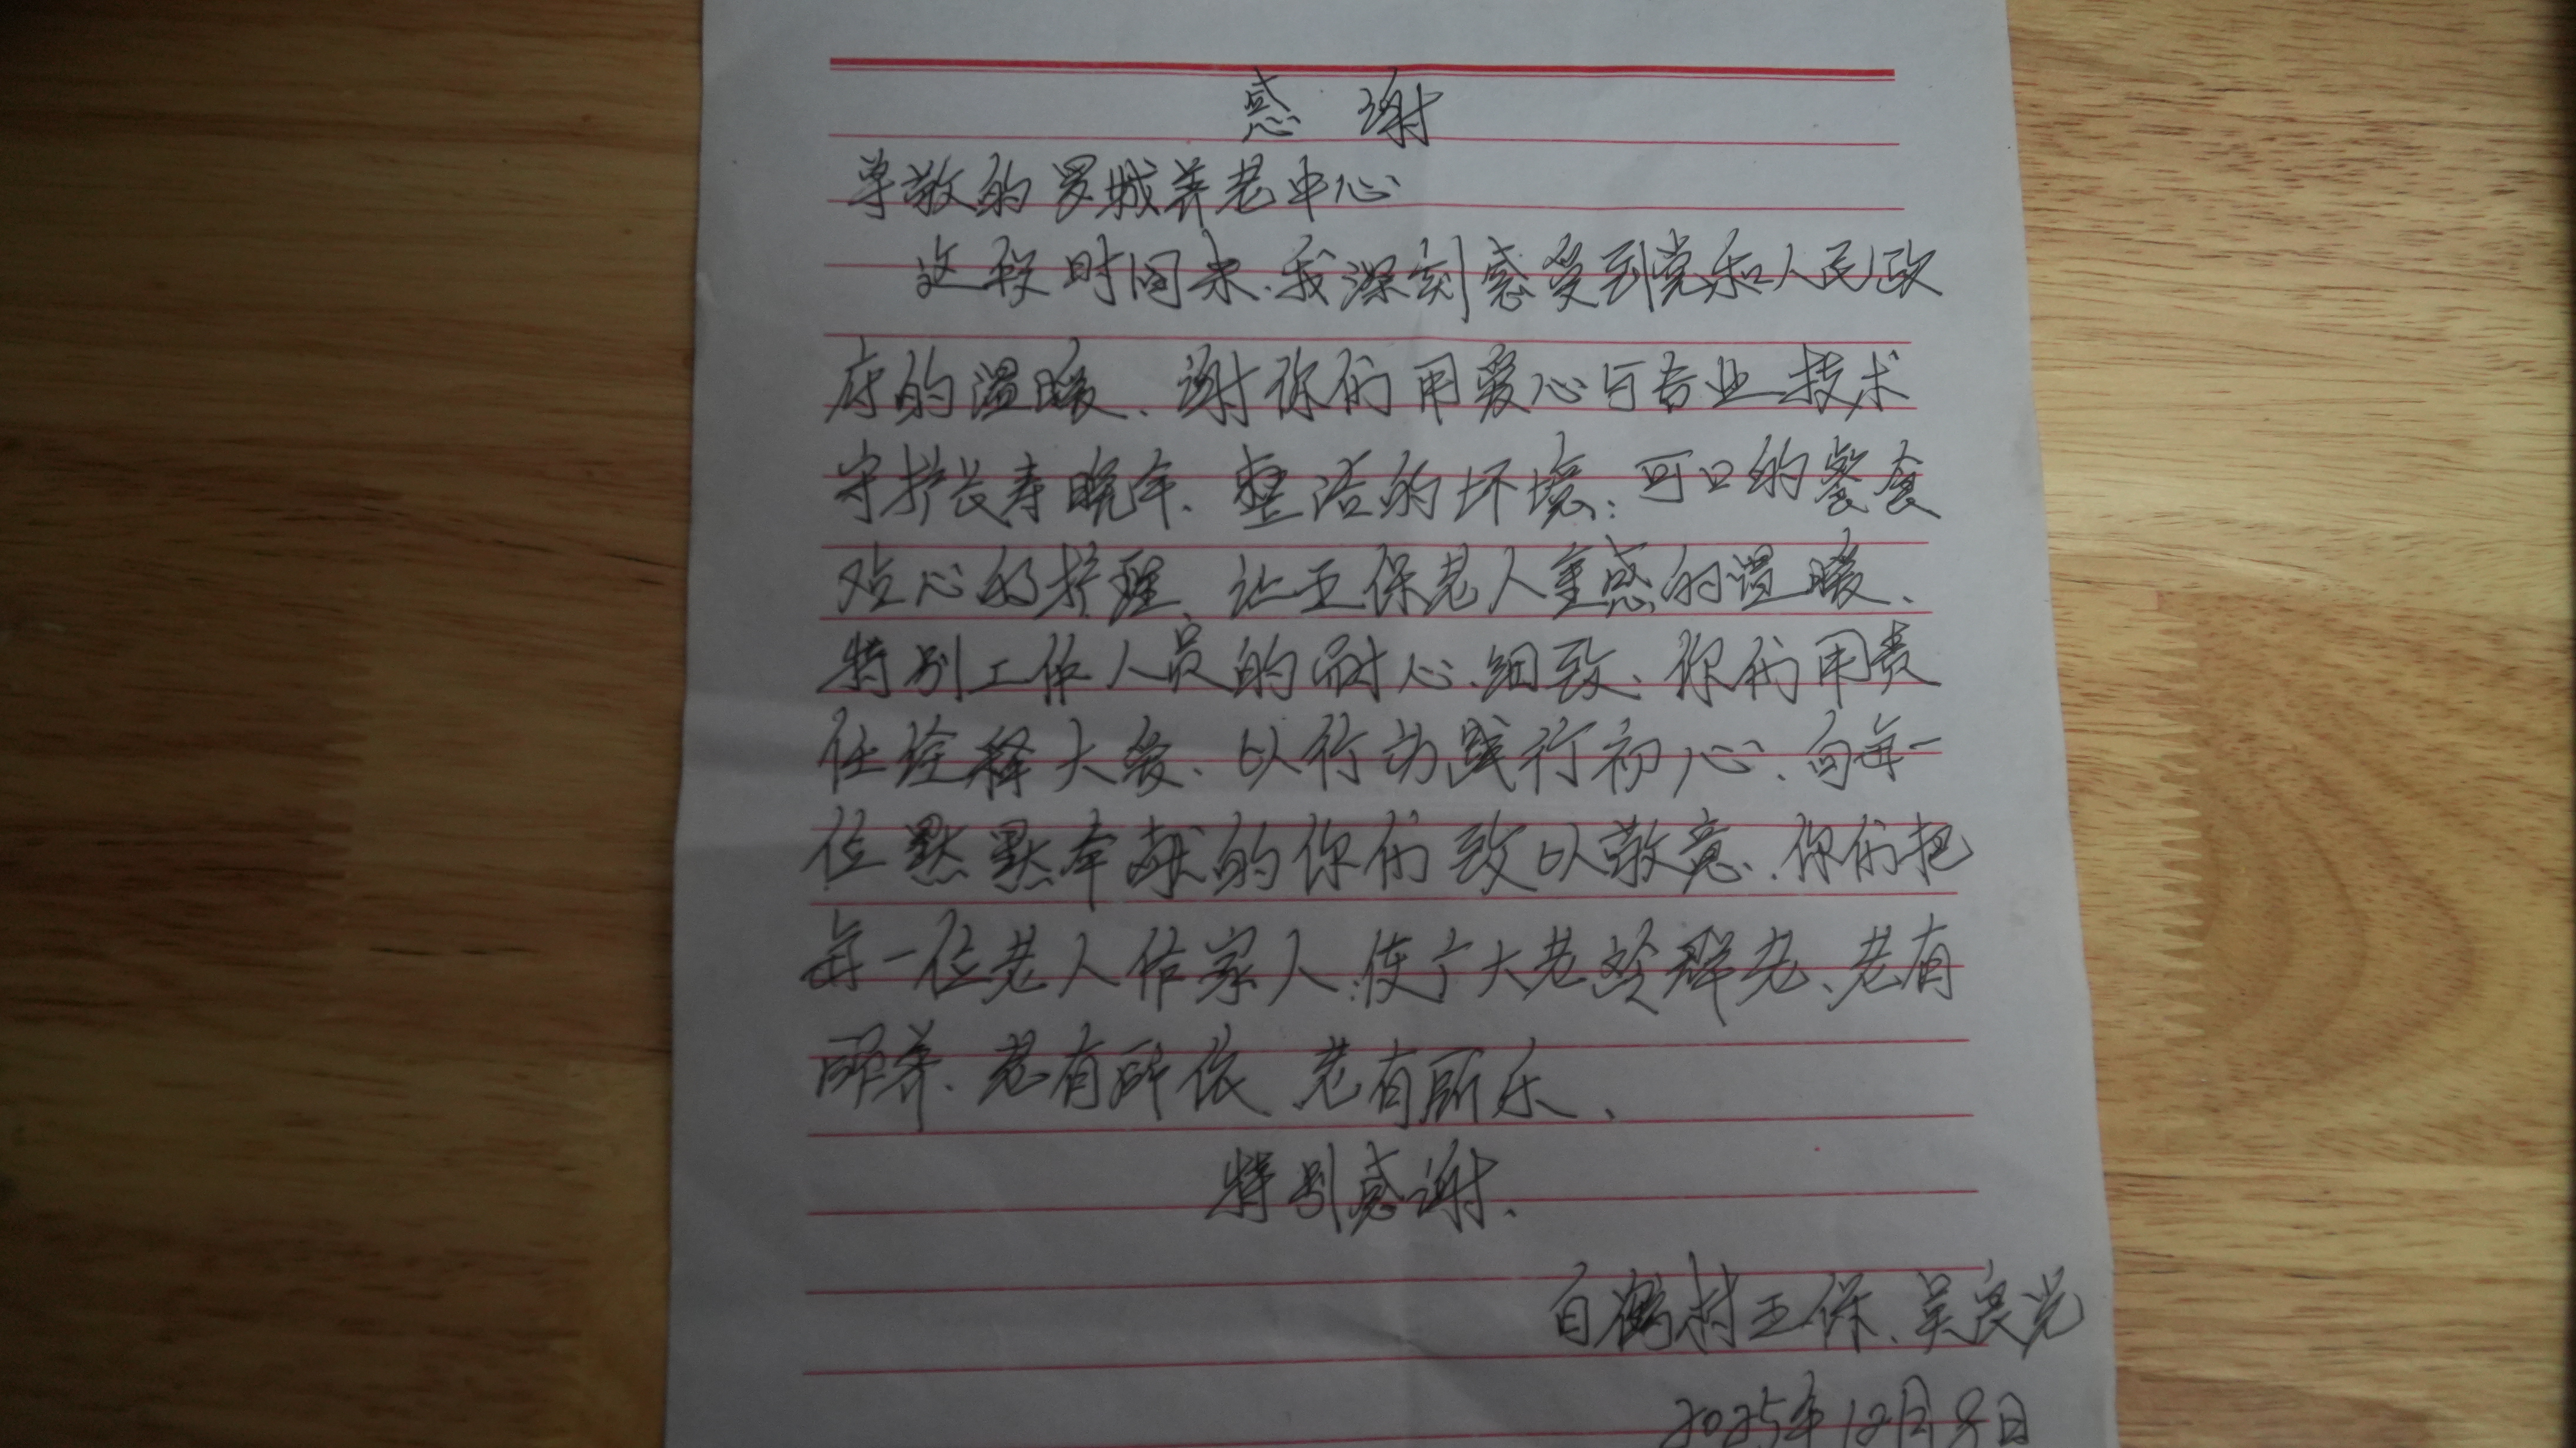 感谢
尊敬的罗城养老中心
这段时间来、我深刻感受到党和人民政
府的温暖、谢你们用爱心与专业技术
守护长寿晚年、整洁的环境、可口的餐食
贴心的护理、让五保老人重感的温暖、
特别工作人员的耐心、细致、你们用责
任诠释大爱、以行动践行初心、向每一
位默默奉献的你们致以敬意、你们把
每一位老人作家人、使广大老龄群老、老有
所养、老有所依、老有所乐、
特别感谢、
白鹤村五保、吴良光
2025年12月8日